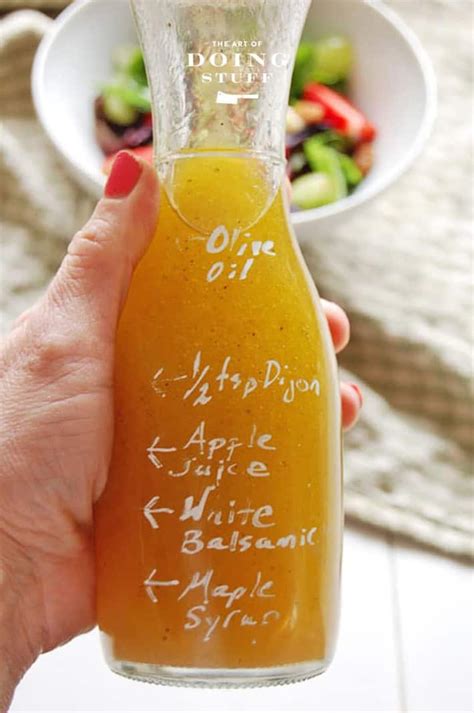 THE ART OF
DOING
STUFF
Olive
Oil
←1/2 tsp Dijon
← Apple
Juice
← White
Balsamic
← Maple
Syrup